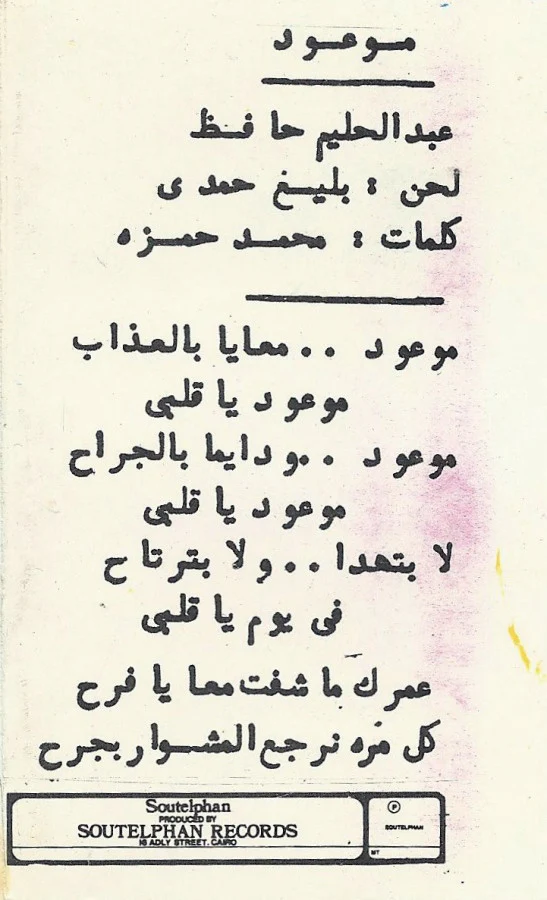 موعود
عبدالحليم حافظ
لحن : بليغ حمدى
كلمات : محمد حمزه
موعود .. معايا بالعذاب
موعود يا قلبى
موعود .. ودايما بالجراح
موعود يا قلبى
لا بتهدا .. ولا بترتاح
فى يوم يا قلبى
عمرك ما شفت معا يا فرح
كل مره نرجع المشوار بجرح
Soutelphan
PRODUCED BY
SOUTELPHAN RECORDS
16 ADLY STREET. CAIRO
Ⓟ
SOUTELPHAN
MT